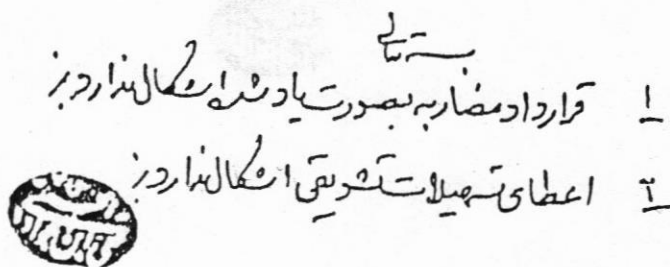 بسمه تعالی
۱ قرارداد مضاربه بصورت یاد شده اشکال ندارد
۲ اعطای تسهیلات تشویقی اشکال ندارد